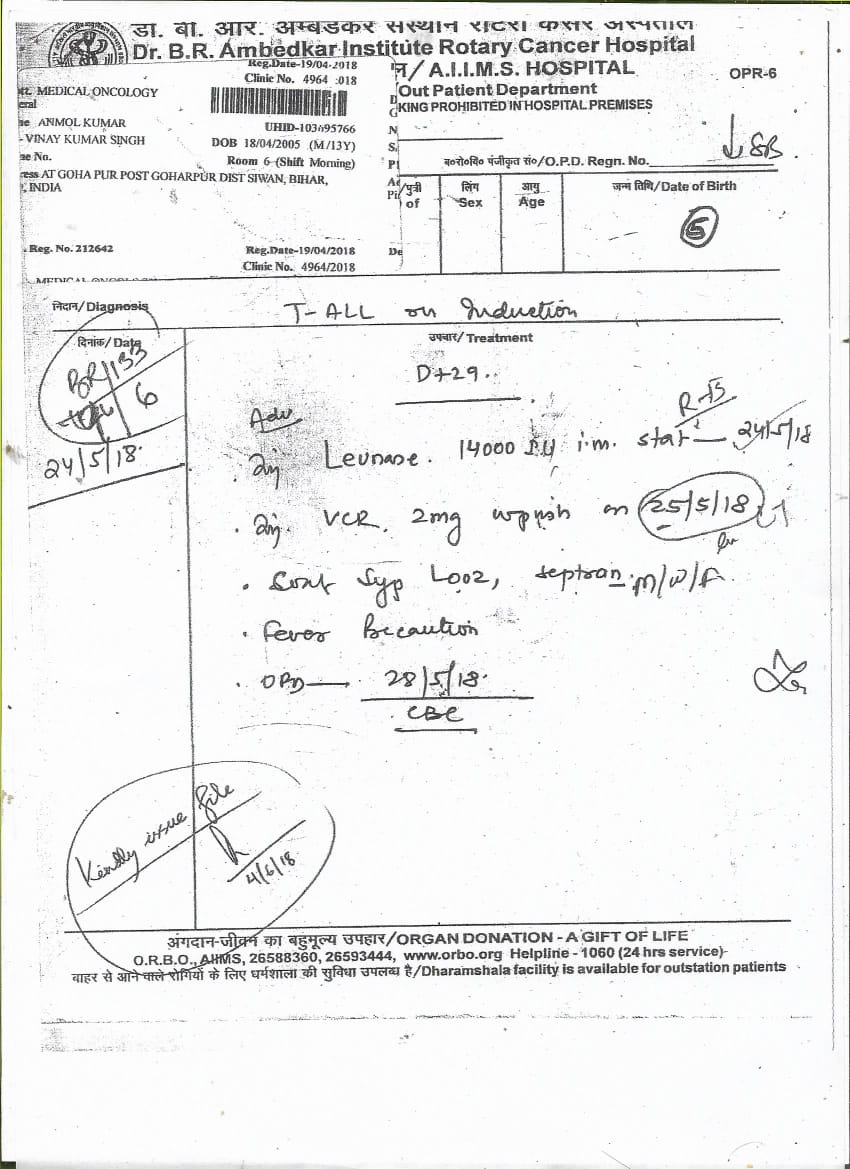 डा. बी. आर. अम्बेडकर संस्थान रोटरी कैंसर अस्पताल
Dr. B.R. Ambedkar Institute Rotary Cancer Hospital
Reg.Date-19/04/2018
Clinic No. 4964 :018
/ A.I.I.M.S. HOSPITAL
OPR-6
MEDICAL ONCOLOGY
Out Patient Department
KING PROHIBITED IN HOSPITAL PREMISES
ANMOL KUMAR
UHID-103695766
VINAY KUMAR SINGH
DOB 18/04/2005 (M/13Y)
ne No.
Room 6 (Shift Morning)
ess AT GOHA PUR POST GOHARPUR DIST SIWAN, BIHAR,
, INDIA
ब०रो०वि० पंजीकृत सं०/O.P.D. Regn. No.
SB
/पुत्री
of
लिंग
Sex
आयु
Age
जन्म तिथि/Date of Birth
5
. Reg. No. 212642
Reg.Date-19/04/2018
Clinic No. 4964/2018
De
MEDICAL ONCOLOGY
निदान/Diagnosis
T-ALL on Induction
दिनांक/Date
उपचार/Treatment
6
D+29
24/5/18
Adv
Inj Leunase. 14000 IU i.m. stat — 24/5/18
. Inj. VCR. 2mg on 25/5/18
. Cont Syp Looz, Septran M/W/F
. Fever Precaution
. OPD — 28/5/18
CBC
Kindly issue file
4/6/18
अंगदान-जीवन का बहुमूल्य उपहार/ORGAN DONATION - A GIFT OF LIFE
O.R.B.O., AIIMS, 26588360, 26593444, www.orbo.org Helpline - 1060 (24 hrs service)
बाहर से आने वाले रोगियों के लिए धर्मशाला की सुविधा उपलब्ध है/Dharamshala facility is available for outstation patients